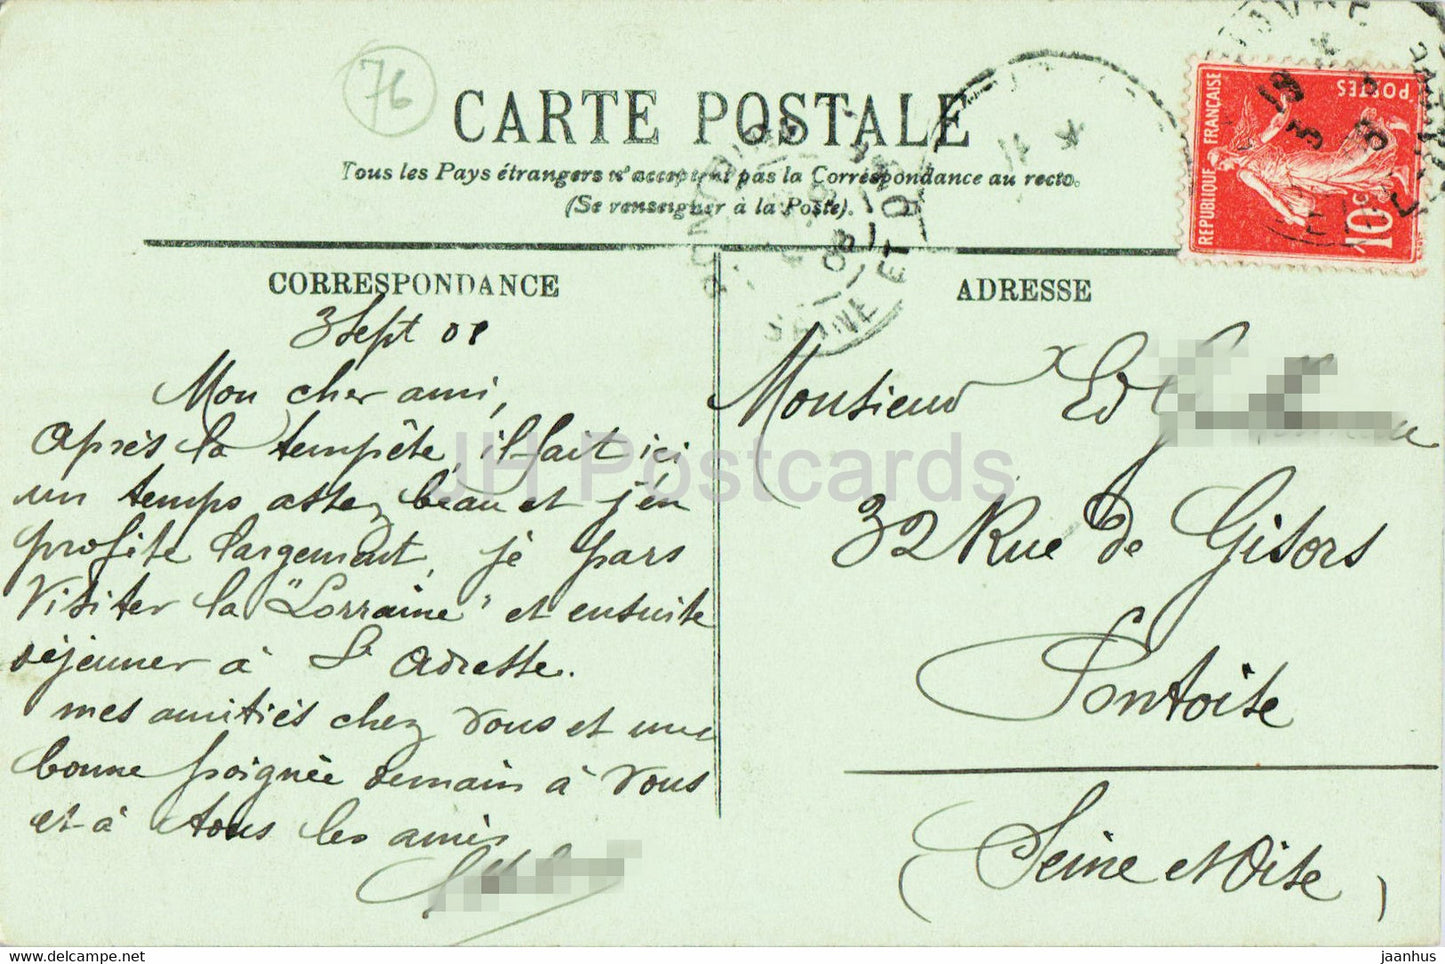 76
CARTE POSTALE
Tous les Pays étrangers n'acceptent pas la Correspondance au recto.
(Se renseigner à la Poste).
REPUBLIQUE FRANÇAISE
POSTES
10c
PONTOISE
SEINE ET OISE
CORRESPONDANCE
3 Sept 08
Mon cher ami,
Après la tempête, il fait ici
un temps assez beau et j'en
profite largement, je pars
visiter la "Lorraine" et ensuite
déjeuner à Ste Adresse.
mes amitiés chez vous et une
bonne poignée demain à vous
et à tous les amis
ADRESSE
Monsieur Ed
32 Rue de Gisors
Pontoise
(Seine et Oise)
JH Postcards
www.delcampe.net
jaanhus